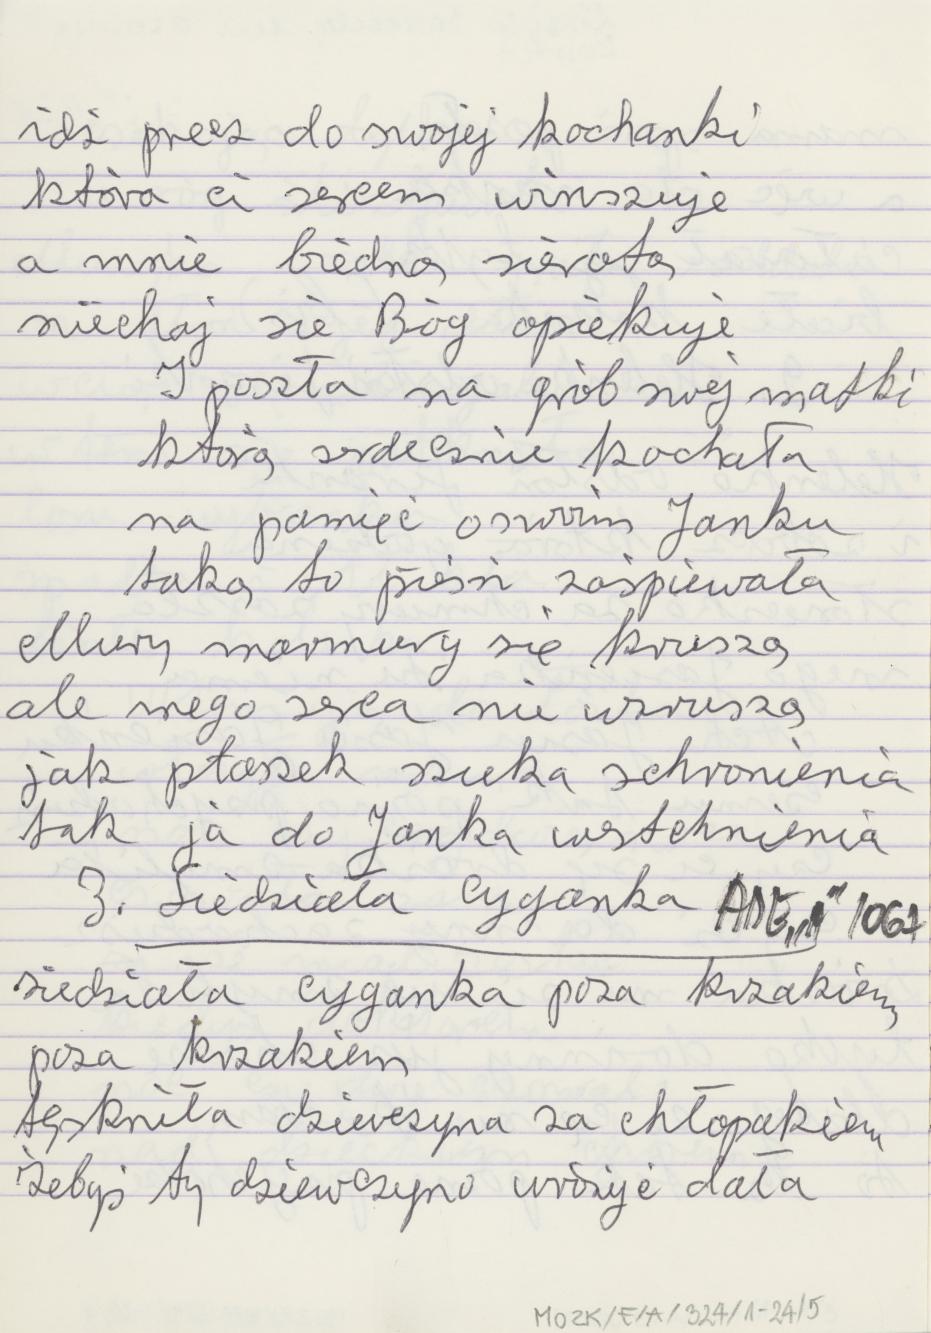 idź precz do swojej kochanki
która ci sercem winszuje
a mnie biedną sierotą
niechaj sie Bóg opiekuje
I poszła na grób swéj matki
którą serdecznie kochała
na pamięć o swoim Janku
taką to pieśń zaśpiewała
Mury marmury się kruszą
ale mego serca nie wzruszą
jak ptaszek szuka schronienia
tak ja do Janka westchnienia
3. Siedziała Cyganka ADE „A" 1067
siedziała cyganka poza krzakiem
poza krzakiem
tęskniła dziewczyna za chłopakiem
Żebyś ty dziewczyno wróżyć dała
MOZK/E/A/324/1-24/5